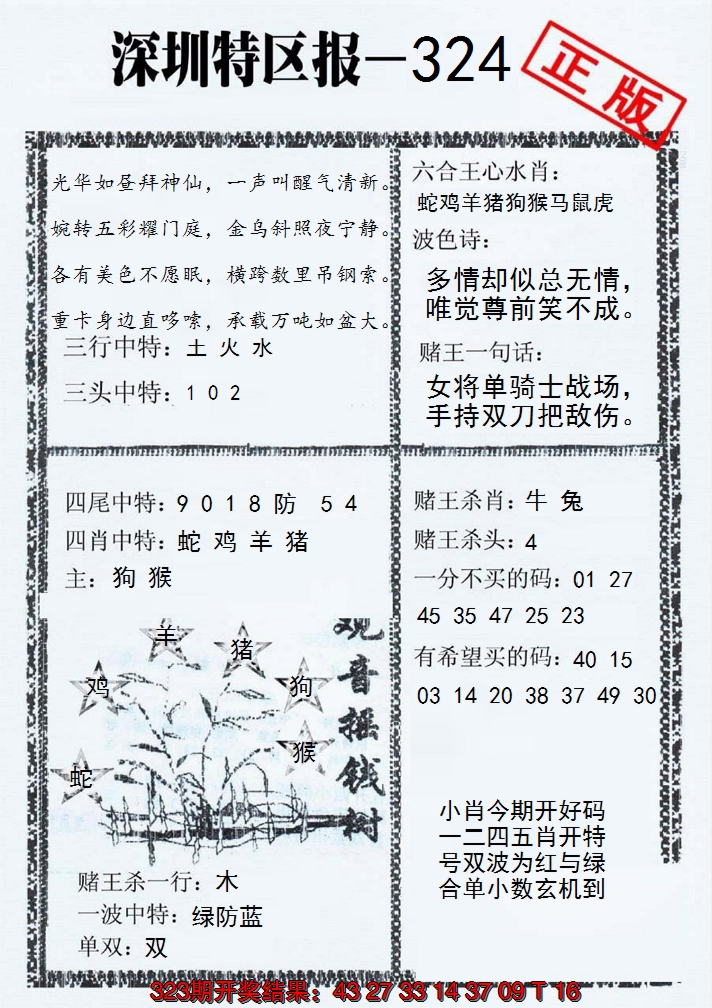 深圳特区报—324
正版
光华如昼拜神仙，一声叫醒气清新。
婉转五彩耀门庭，金乌斜照夜宁静。
各有美色不愿眠，横跨数里吊钢索。
重卡身边直哆嗦，承载万吨如盆大。
三行中特：土 火 水
三头中特：1 0 2
六合王心水肖：
蛇鸡羊猪狗猴马鼠虎
波色诗：
多情却似总无情，
唯觉尊前笑不成。
赌王一句话：
女将单骑士战场，
手持双刀把敌伤。
四尾中特：9 0 1 8 防 5 4
四肖中特：蛇 鸡 羊 猪
主：狗 猴
羊
猪
鸡
狗
猴
蛇
观音摇钱树
赌王杀一行：木
一波中特：绿防蓝
单双：双
赌王杀肖：牛 兔
赌王杀头：4
一分不买的码：01 27
45 35 47 25 23
有希望买的码：40 15
03 14 20 38 37 49 30
小肖今期开好码
一二四五肖开特
号双波为红与绿
合单小数玄机到
323期开奖结果：43 27 33 14 37 09 T 16